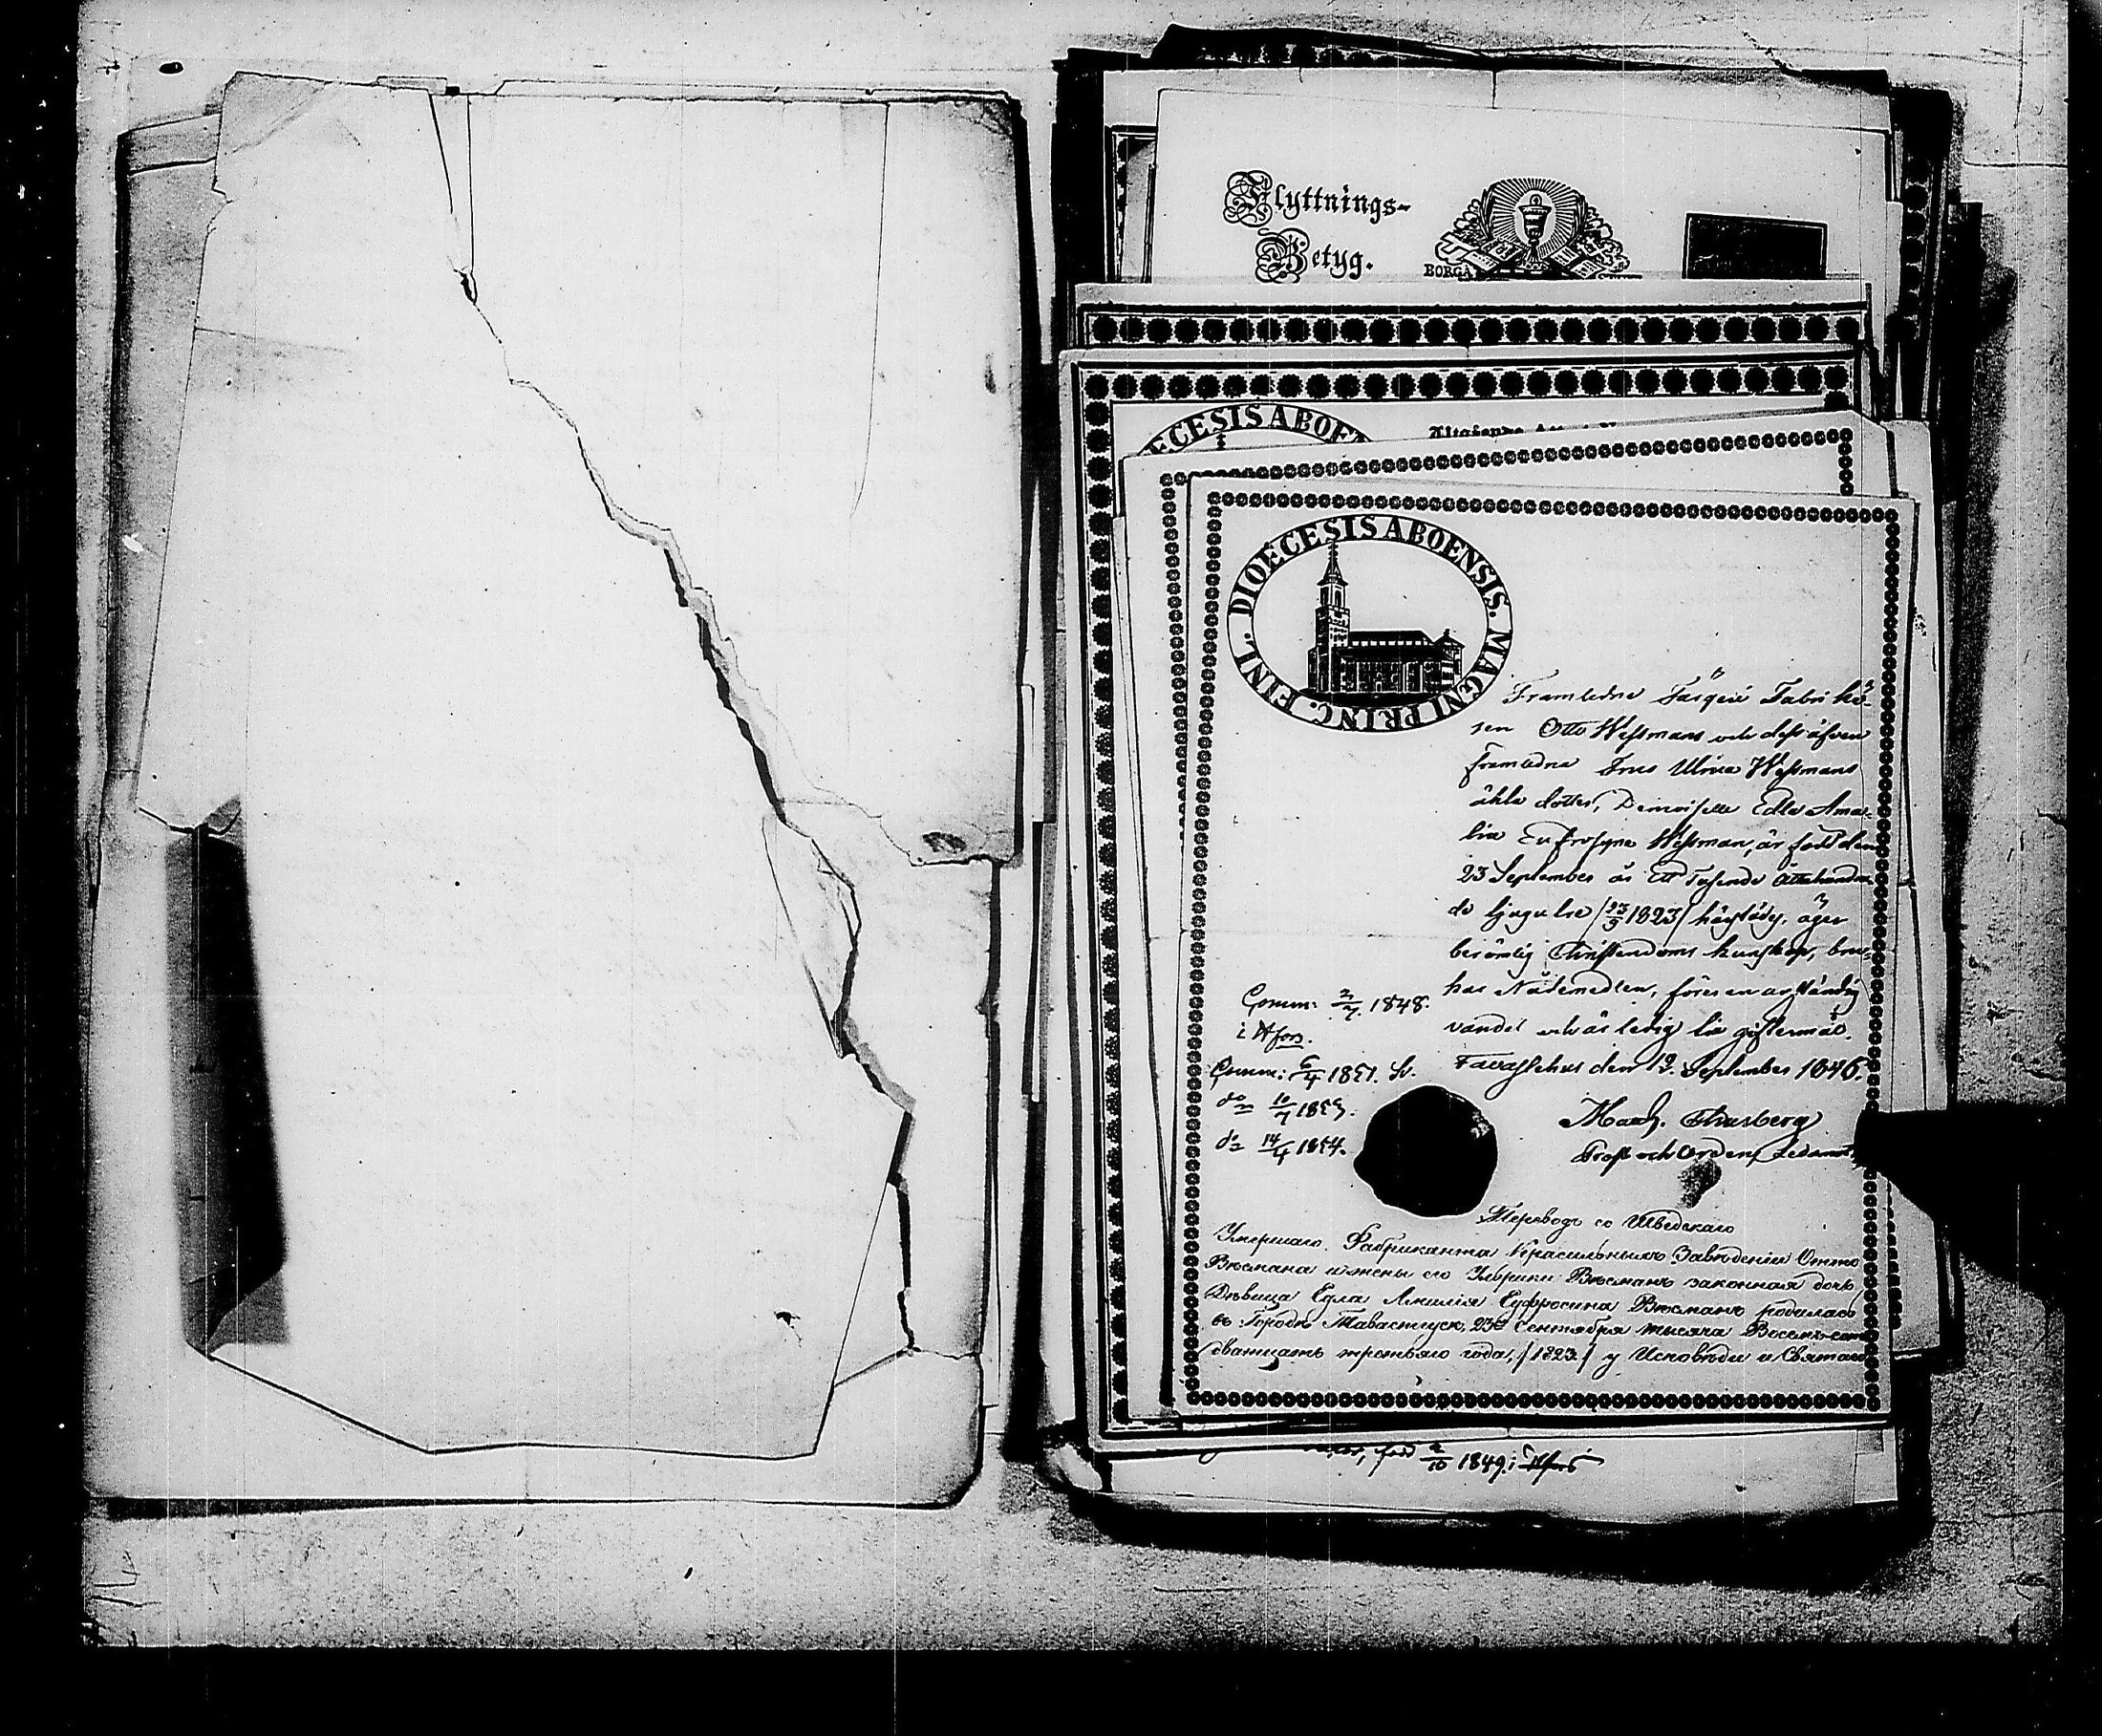 Flyttnings-
Betyg.
BORGÅ
ECESIS ABOEN
DIOECESIS ABOENSIS. MAGNI PRINC. FINL.
Framledne Färgeri Fabrikö-
ren Otto Wessmans och dess äfven
framledna Frus Ulrica Wessmans
äkta dotter, Demoiselle Edla Ama-
lia Eufrosyne Wessman, är född den
23 September år Ett Tusende Åttahundra-
de tjugutre (23/9 1823) härstädes, äger
berömlig Christendoms kunskap, bru-
kar Nådemedlen, föres en anständig
vandel och är ledig till giftermål.
Tavastehus den 12. September 1846.
Comm: 2/7 1848.
i Hfors.
Comm: 6/4 1851. Sv.
do 10/7 1853.
do 14/4 1854.
Prost och Orden Ledamot
Переводъ со Шведскаго
Умершаго Фабриканта Красильныхъ Заведеній Отто
Весмана и жены его Ульрики Весманъ законная дочь
Девица Едла Амалія Еуфросина Весманъ родилась
въ Городе Тавастгусе, 23го Сентября тысяча Восемь-сотъ
дватцать третьяго года, (1823) у Исповеди и Святаго
född 2/10 1849 i Hfors